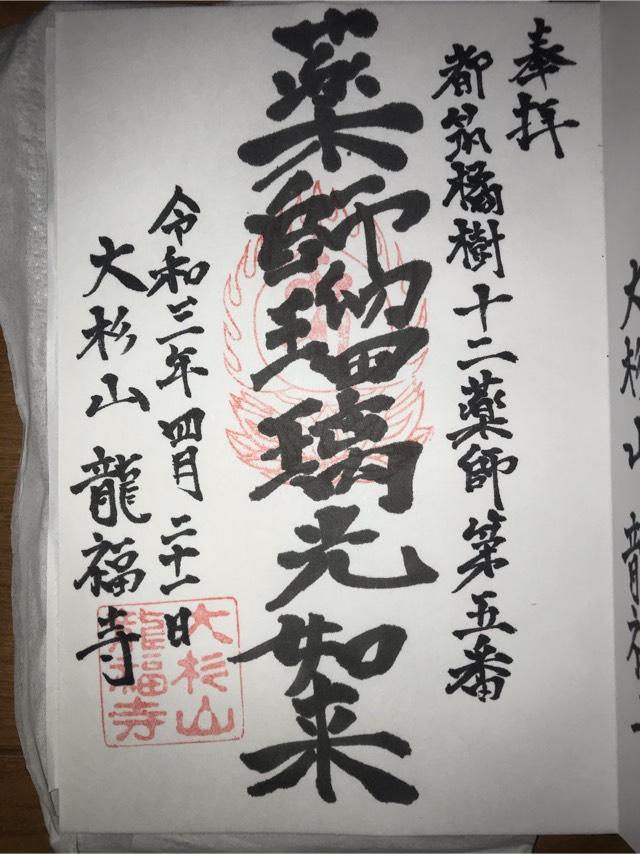 奉拝
都筑橘樹十二薬師第五番
薬師瑠璃光如来
令和三年四月二十一日
大杉山龍福寺
大杉山
龍福寺
大杉山龍福寺